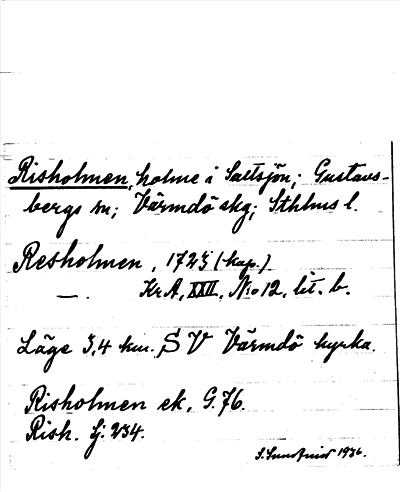 Risholmen, holme i Saltsjön; Gustavs-
bergs sn; Värmdö skg; Sthlms l.
Resholmen, 1723 (kop.)
—. KrA, XXII, No 12, lit. b.
Läge 3,4 km. SV Värmdö kyrka.
Risholmen ek. G. 76.
Rish. lj. 234.
1936.